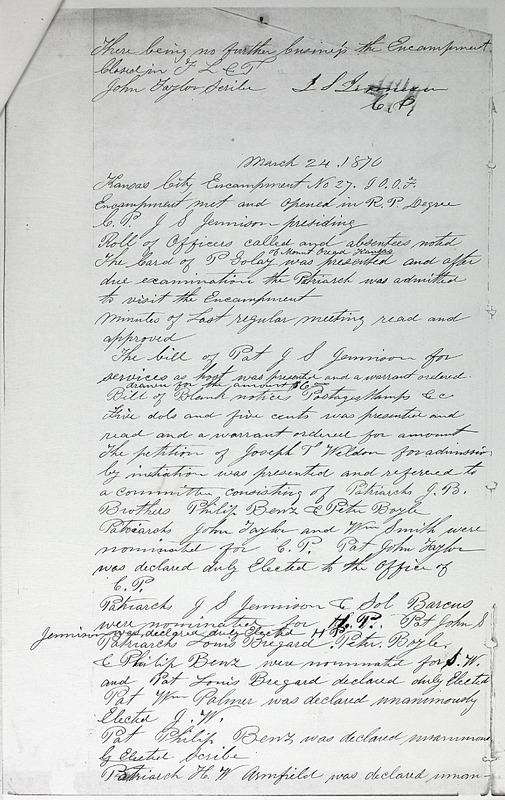 There being no further business the Encampment
Closed in F L & T
John Taylor Scribe J S Jennison
C. P.
March 24. 1870
Kansas City Encampment No 27. I O. O. F.
Encampment met and opened in R. P. Degree
C. P. J S Jennison presiding
Roll of Officers called and absentees noted
of Mount Oread Kansas
The Card of P Golay was presented and after
due examination the Patriarch was admitted
to visit the Encampment
Minutes of Last regular meeting read and
approved
The bill of Pat J S Jennison for
services as host was presented and a warrant ordered
drawn for the amount $6
Bill of Blank notices Postage stamps &c
Five dols and five cents was presented and
read and a warrant ordered for amount
The petition of Joseph T Weldon for admission
by initiation was presented and refered to
a committee consisting of Patriarchs J. B.
Brothers Philip Benz & Peter Boyle
Patriarchs John Taylor and Wm Smith were
nominated for C. P. Pat John Taylor
was declared duly Elected to the Office of
C. P.
Patriarchs J S Jennison & Sol Barcus
were nominated for H. P. Pat John S
Jennison was declared duly Elected H P
Patriarchs Louis Bregard Peter Boyle
& Philip Benz were nominated for S. W.
and Pat Louis Bregard declared duly Elected
Pat Wm Palmer was declared unanimously
Elected J. W.
Pat Philip Benz was declared unanimous
ly Elected Scribe
Patriarch H. W Armfield was declared unan-